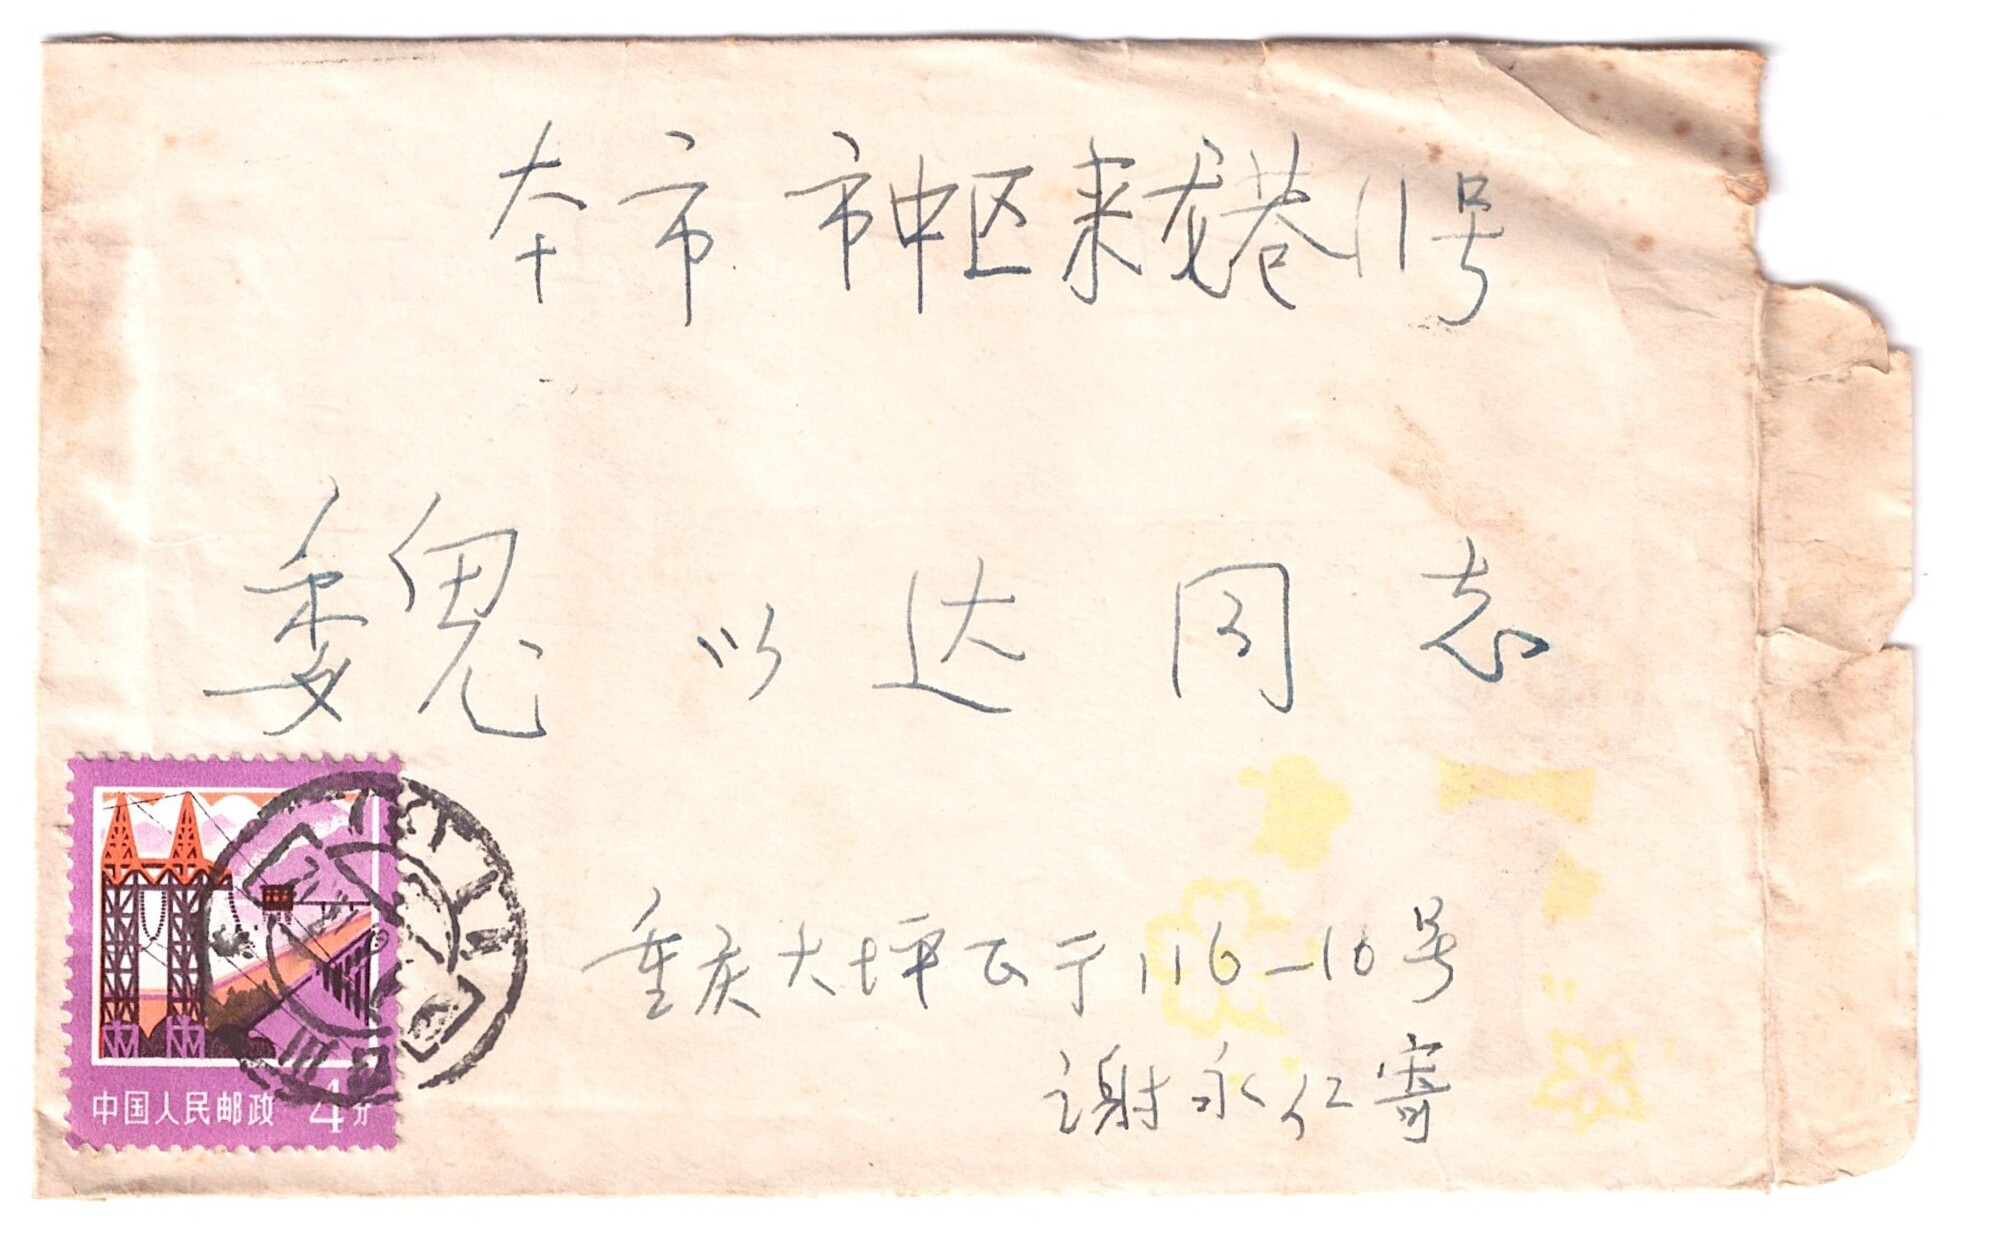 本市 市中区来龙巷11号
魏以达同志
重庆大坪正于116-10号
谢永仁寄
中国人民邮政 4分